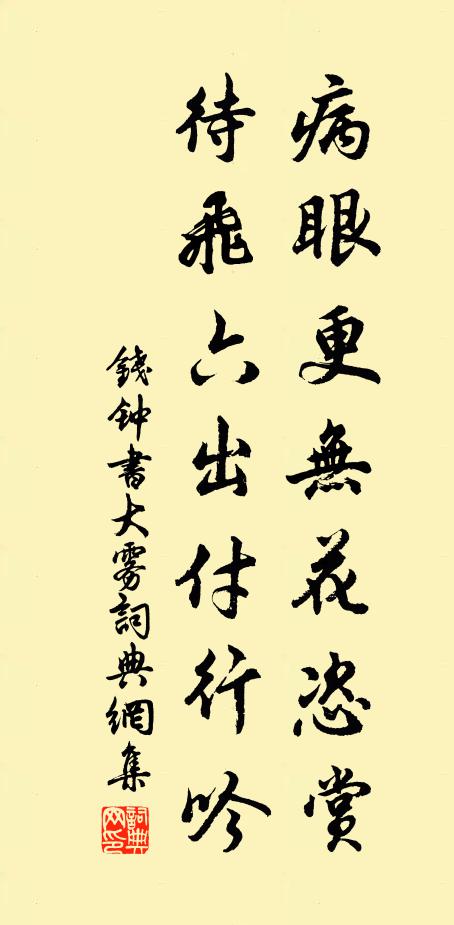 病眼更無花恣賞
待飛六出付行吟
錢钟書大雾詞典網集
詞典網印